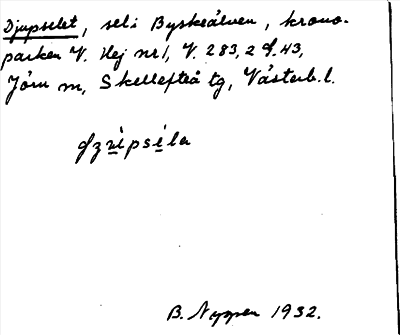 Djupselet, sel i Byskeälven, krono-
parken V. Hej nr 1, V. 283, 2 f. 43,
Jörn m, Skellefteå tg, Västerb. l.
B. Nyman 1932.